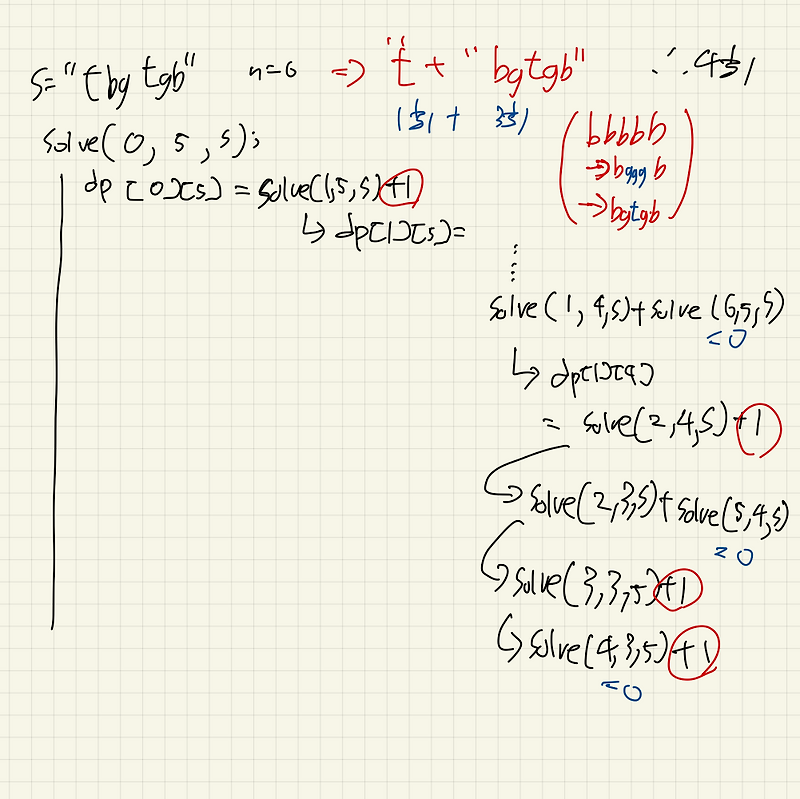 s="tbgtgb" n=6 => "t" + "bgtgb" ∴ 4번
1번 + 3번
solve(0, 5, s);
(bbbbb
→bgggb
→bgtgb)
dp[0][5] = solve(1,5,s)+1
↳ dp[1][5]=
⋮
solve(1, 4,s)+solve(6,5,s)
=0
↳ dp[1][4]
= solve(2,4,s)+1
solve(2,3,s)+solve(5,4,s)
=0
solve(3,3,s)+1
solve(4,3,s)+1
=0